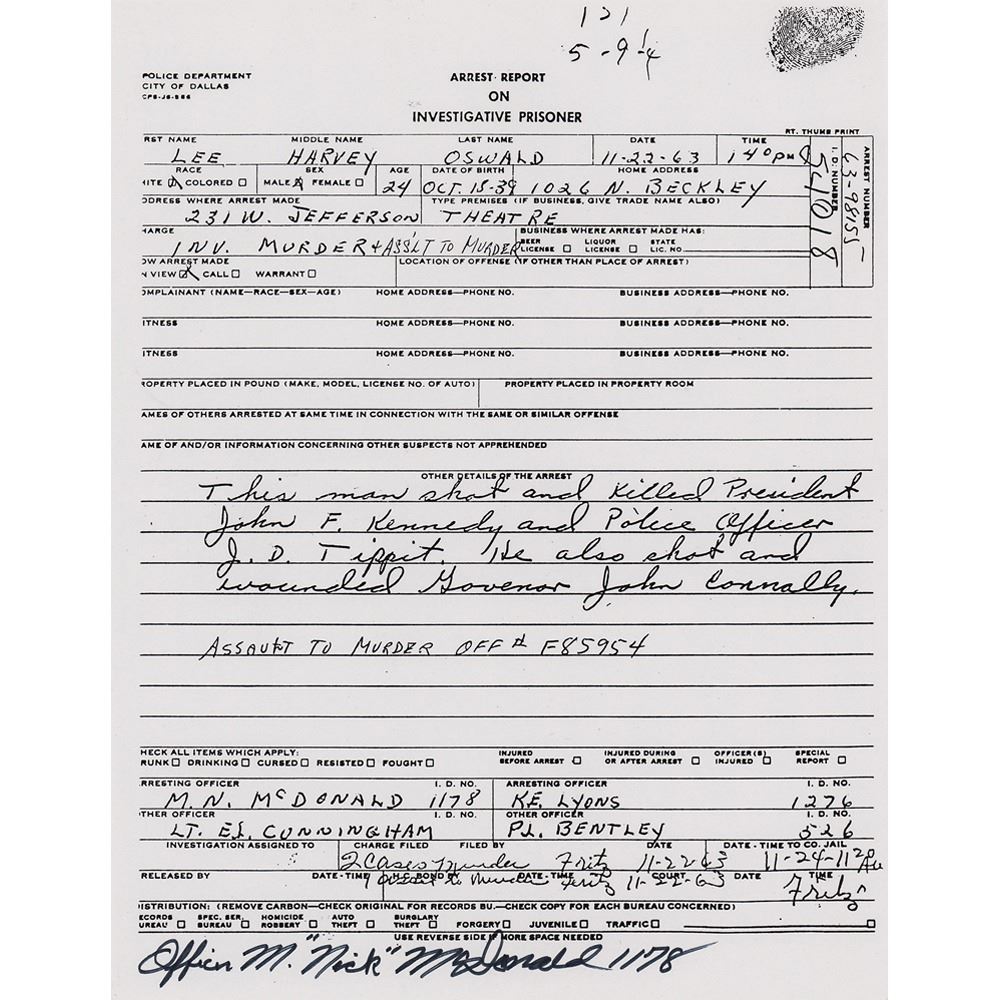 121
5-9-1/4
POLICE DEPARTMENT
CITY OF DALLAS
ARREST REPORT
ON
INVESTIGATIVE PRISONER
RT. THUMB PRINT
RST NAME MIDDLE NAME LAST NAME DATE TIME
LEE HARVEY OSWALD 11-22-63 1 40 PM
RACE SEX AGE DATE OF BIRTH HOME ADDRESS
HITE COLORED MALE FEMALE 24 OCT. 18-39 1026 N. BECKLEY
I. D. NUMBER 54018
ARREST NUMBER 63-98155
DDRESS WHERE ARREST MADE TYPE PREMISES (IF BUSINESS, GIVE TRADE NAME ALSO)
231 W. JEFFERSON THEATRE
HARGE BUSINESS WHERE ARREST MADE HAS:
INV. MURDER & ASS'LT TO MURDER BEER LICENSE LIQUOR LICENSE STATE LIC. NO.
OW ARREST MADE LOCATION OF OFFENSE (IF OTHER THAN PLACE OF ARREST)
N VIEW CALL WARRANT
OMPLAINANT (NAME—RACE—SEX—AGE) HOME ADDRESS—PHONE NO. BUSINESS ADDRESS—PHONE NO.
ITNESS HOME ADDRESS—PHONE NO. BUSINESS ADDRESS—PHONE NO.
ITNESS HOME ADDRESS—PHONE NO. BUSINESS ADDRESS—PHONE NO.
ROPERTY PLACED IN POUND (MAKE, MODEL, LICENSE NO. OF AUTO) PROPERTY PLACED IN PROPERTY ROOM
AMES OF OTHERS ARRESTED AT SAME TIME IN CONNECTION WITH THE SAME OR SIMILAR OFFENSE
AME OF AND/OR INFORMATION CONCERNING OTHER SUSPECTS NOT APPREHENDED
OTHER DETAILS OF THE ARREST
This man shot and killed President
John F. Kennedy and Police Officer
J. D. Tippit. He also shot and
wounded Govenor John Connally.
ASSAULT TO MURDER OFF # F85954
HECK ALL ITEMS WHICH APPLY:
RUNK DRINKING CURSED RESISTED FOUGHT INJURED BEFORE ARREST INJURED DURING OR AFTER ARREST OFFICER(S) INJURED SPECIAL REPORT
RRESTING OFFICER I. D. NO. ARRESTING OFFICER I. D. NO.
M. N. McDONALD 1178 K.E. LYONS 1276
THER OFFICER I. D. NO. OTHER OFFICER I. D. NO.
LT. E.L. CUNNINGHAM P.L. BENTLEY 526
INVESTIGATION ASSIGNED TO CHARGE FILED FILED BY DATE DATE-TIME TO CO. JAIL
2 Cases Murder Fritz 11-22-63 11-24-11 20 AM
RELEASED BY DATE-TIME H.C. BOND BY DATE-TIME COURT DATE TIME
1 assault to Murder Fritz 11-22-63 Fritz
ISTRIBUTION: (REMOVE CARBON—CHECK ORIGINAL FOR RECORDS BU.—CHECK COPY FOR EACH BUREAU CONCERNED)
ECORDS UREAU SPEC. SER. BUREAU HOMICIDE ROBBERY AUTO THEFT BURGLARY THEFT FORGERY JUVENILE TRAFFIC
USE REVERSE SIDE IF MORE SPACE NEEDED
Officer M. "Nick" McDonald 1178